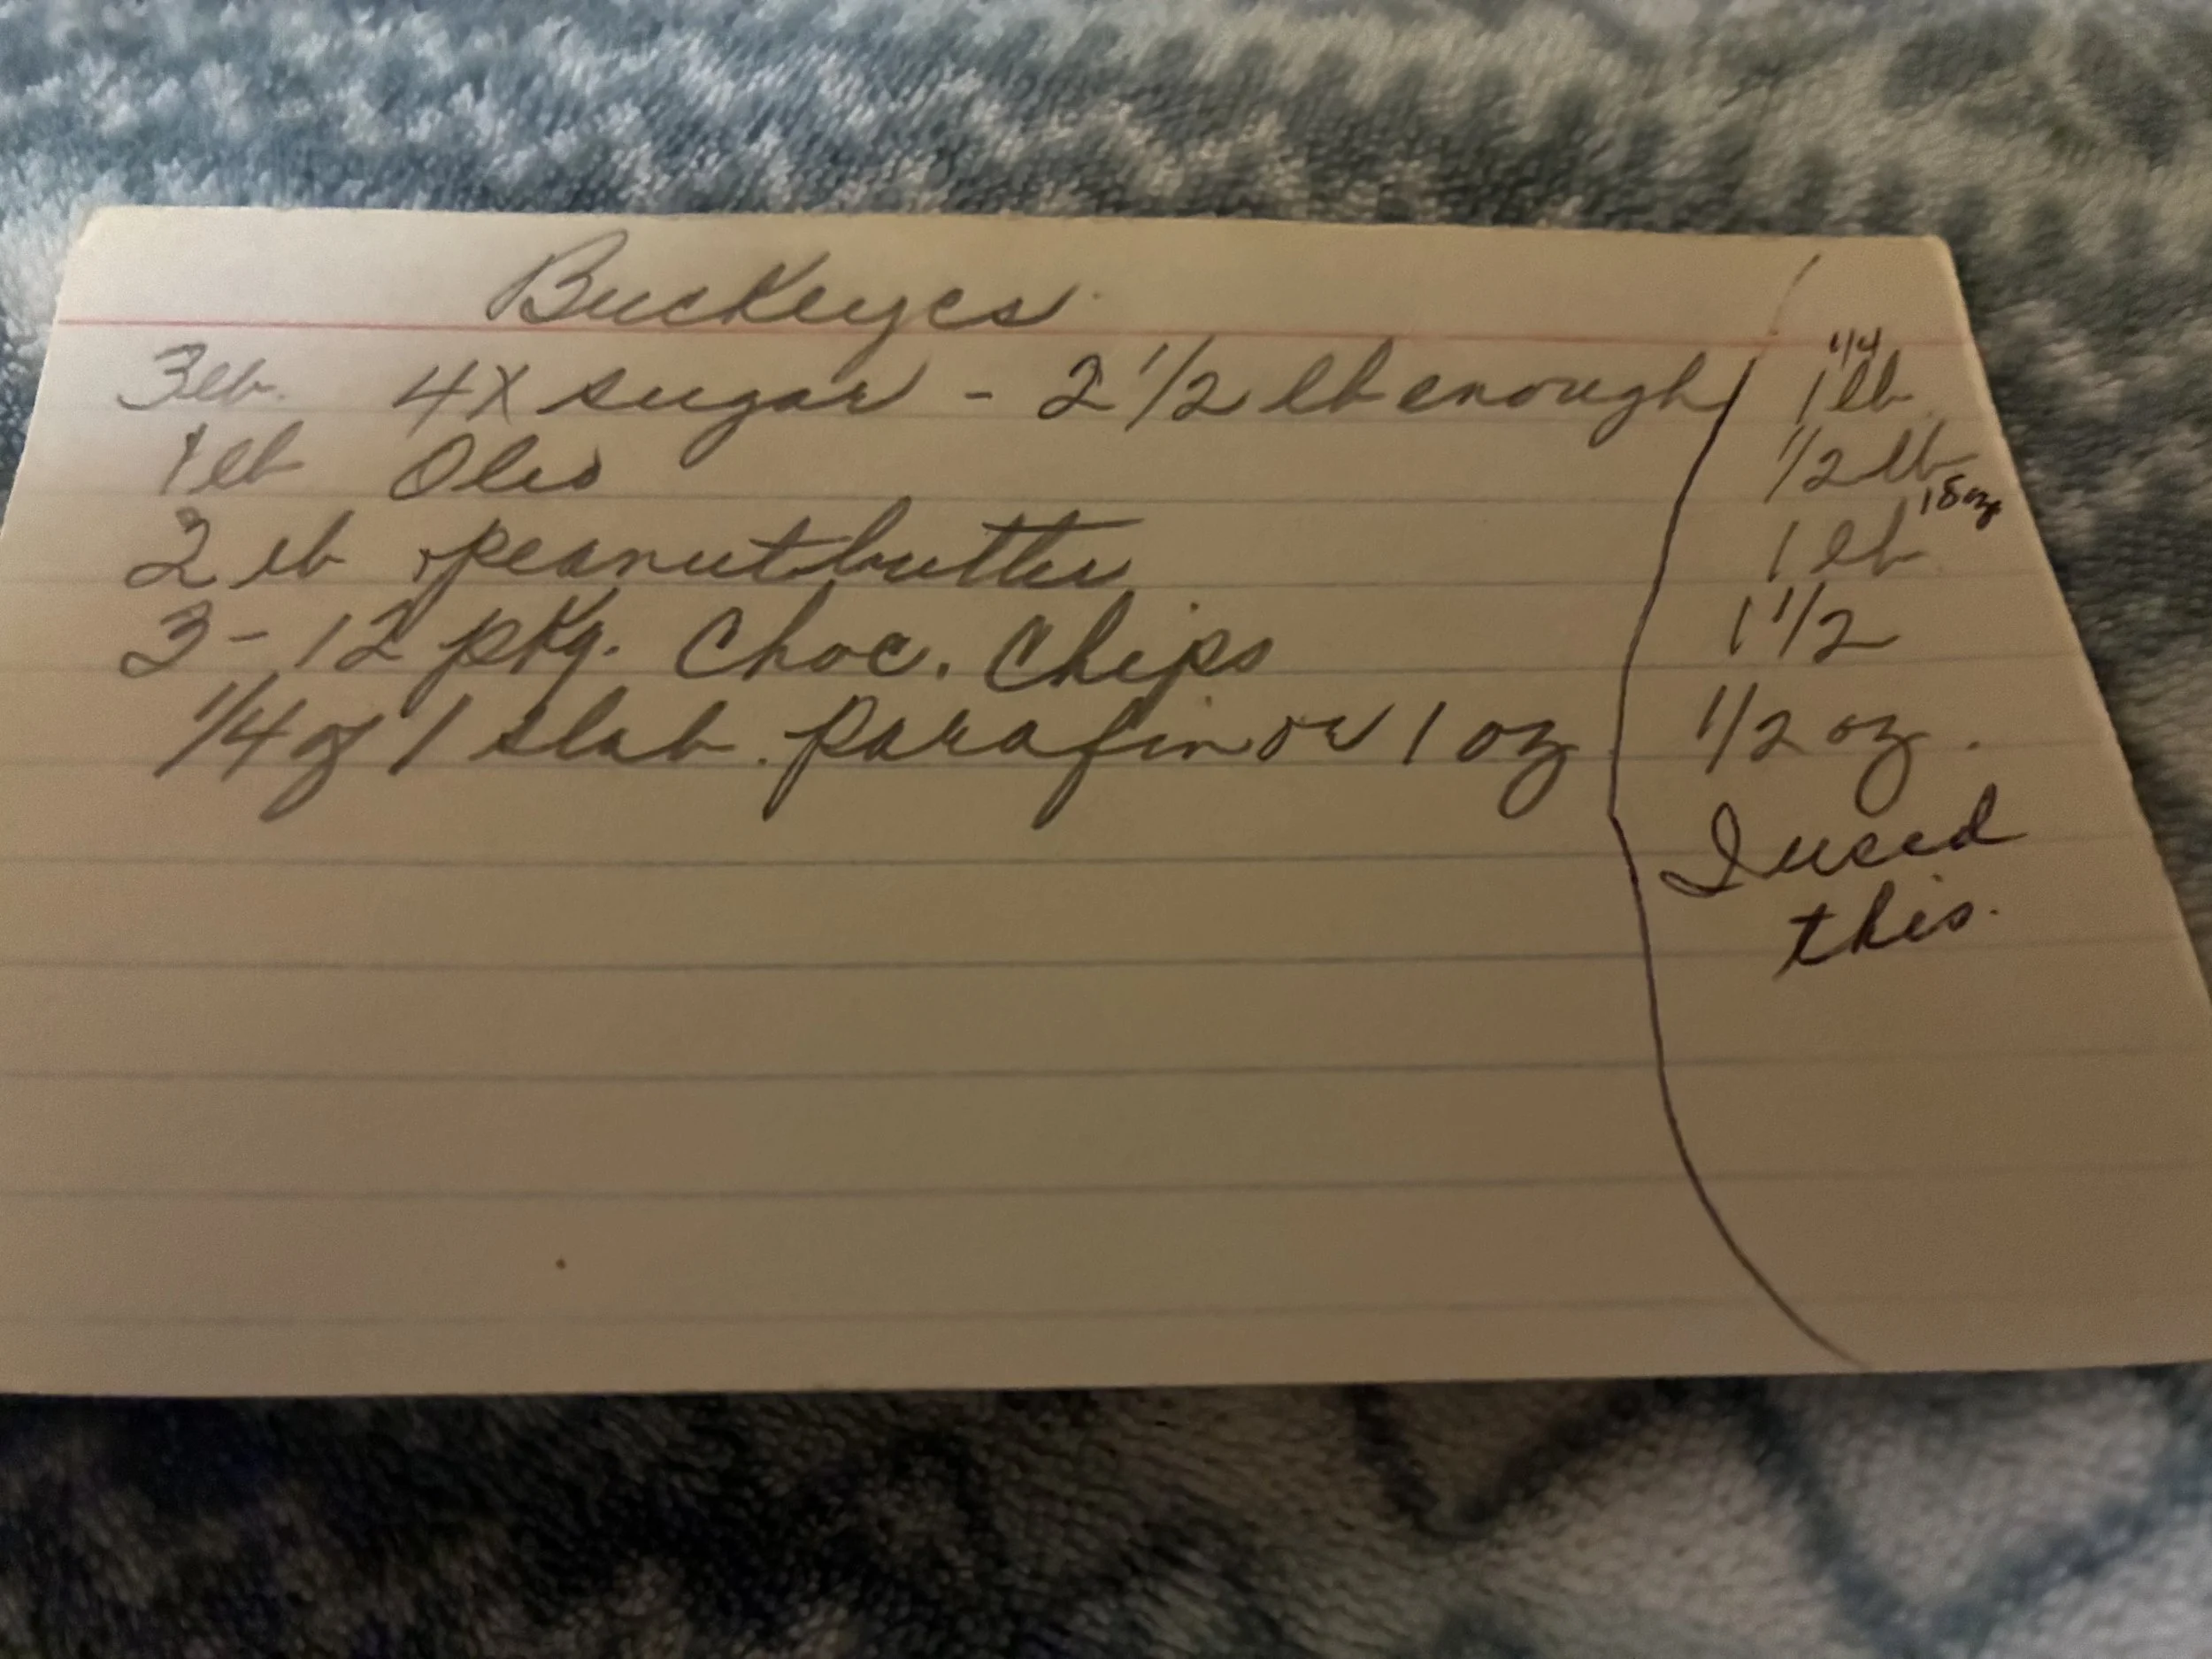 Buckeyes
3 lb. 4X sugar - 2 1/2 lb enough
1 lb Oleo
2 lb peanutbutter
3 - 12 pkg. Choc. Chips
1/4 of 1 slab. parafin or 1 oz
1/4
1 lb.
1/2 lb
18 oz
1 lb
1 1/2
1/2 oz.
I used
this.